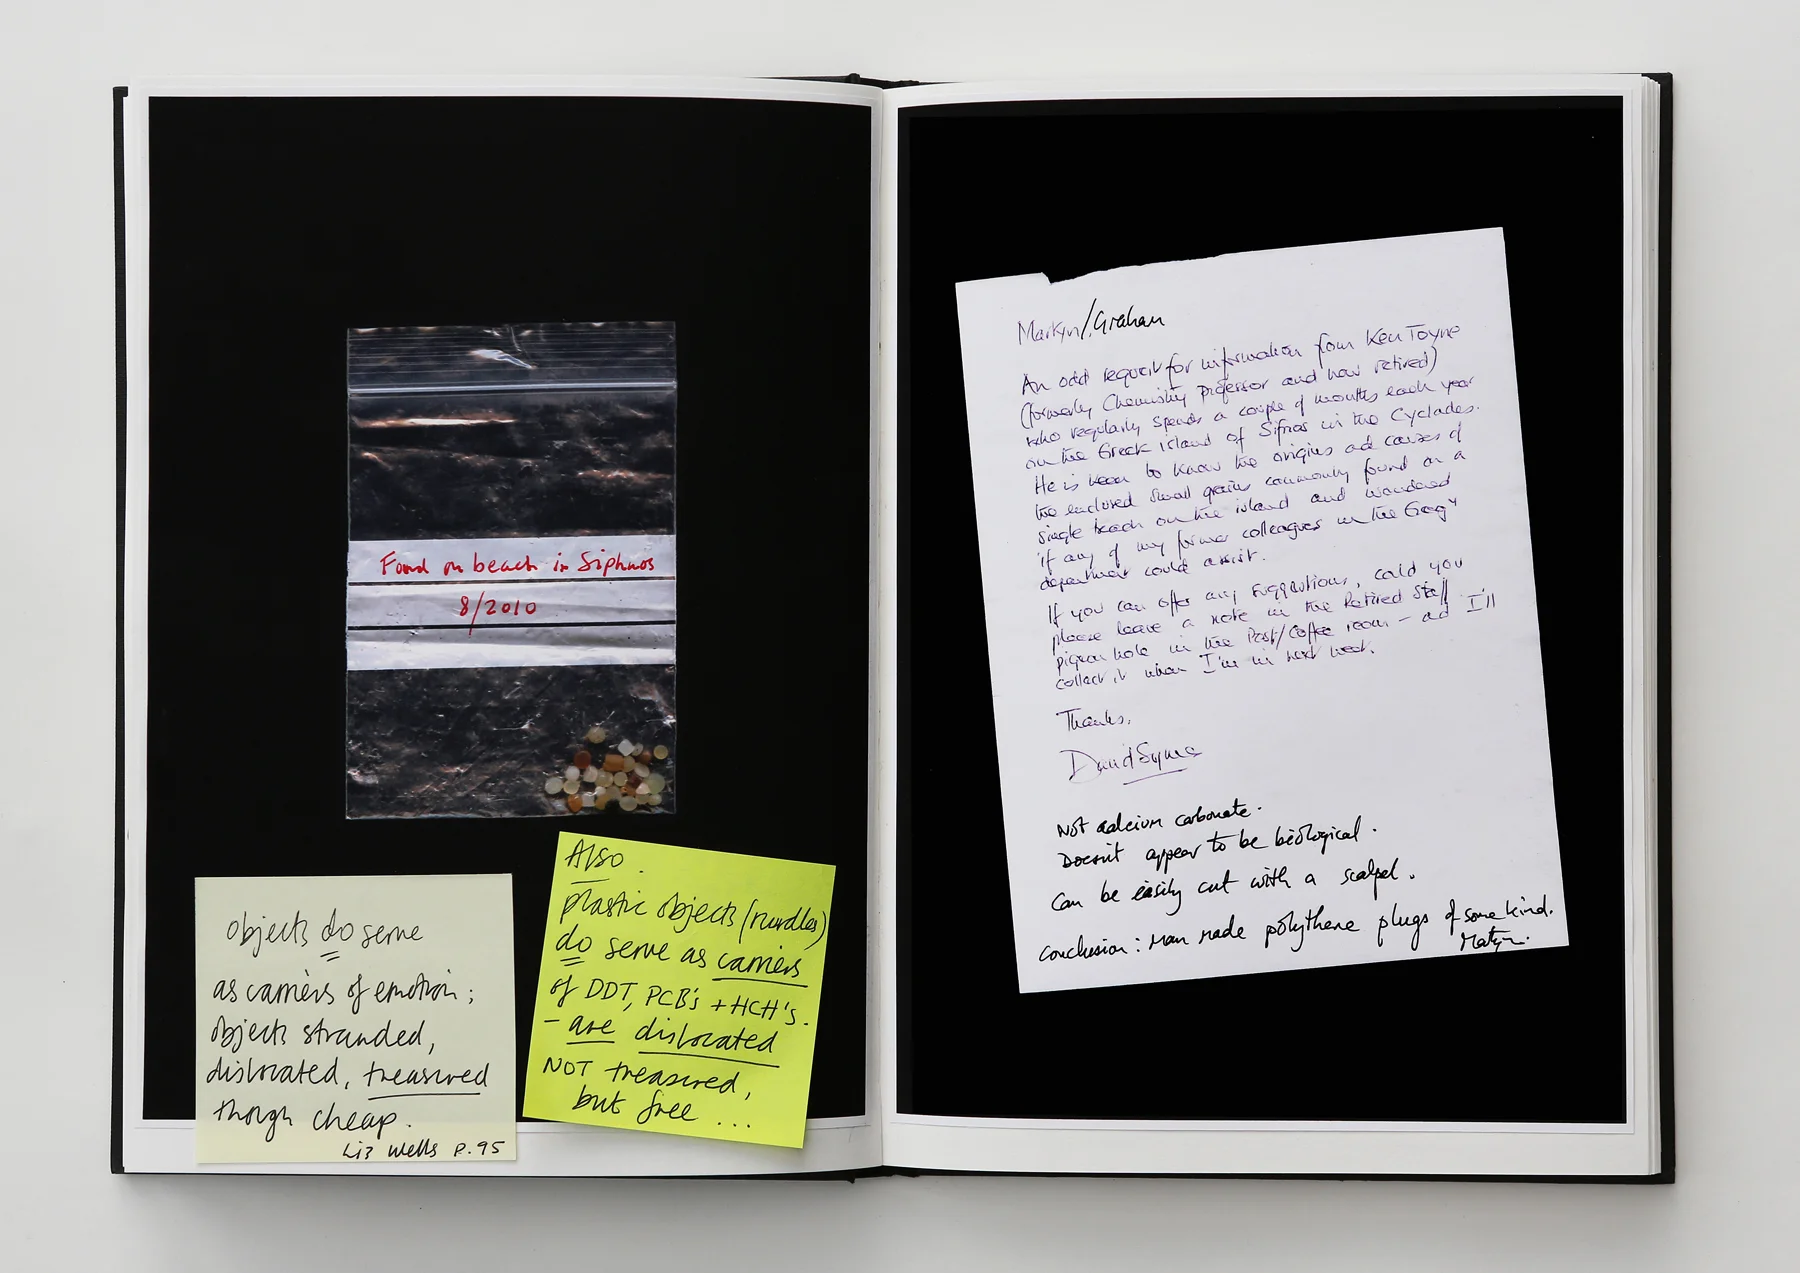 Found on beach in Siphnos
8/2010
objects do serve
as carriers of emotion;
objects stranded,
dislocated, treasured
though cheap.
Liz Wells p.95
Also
plastic objects (nurdles)
do serve as carriers
of DDT, PCB's + HCH's.
- are dislocated
NOT treasured,
but free ...
Martyn/Graham
An odd request for information from Ken Toyne
(formerly Chemistry Professor and now retired)
who regularly spends a couple of months each year
on the Greek island of Sifnos in the Cyclades.
He is keen to know the origins and causes of
the enclosed small grains commonly found on a
single beach on the island and wondered
if any of my former colleagues in the Geog^y
department could assist.
If you can offer any suggestions, could you
please leave a note in the Retired Staff
pigeon hole in the Post/Coffee room - and I'll
collect it when I'm in next week.
Thanks,
David Symes
Not calcium carbonate.
Doesn't appear to be biological.
Can be easily cut with a scalpel.
Conclusion: Man made polythene plugs of some kind.
Martyn.